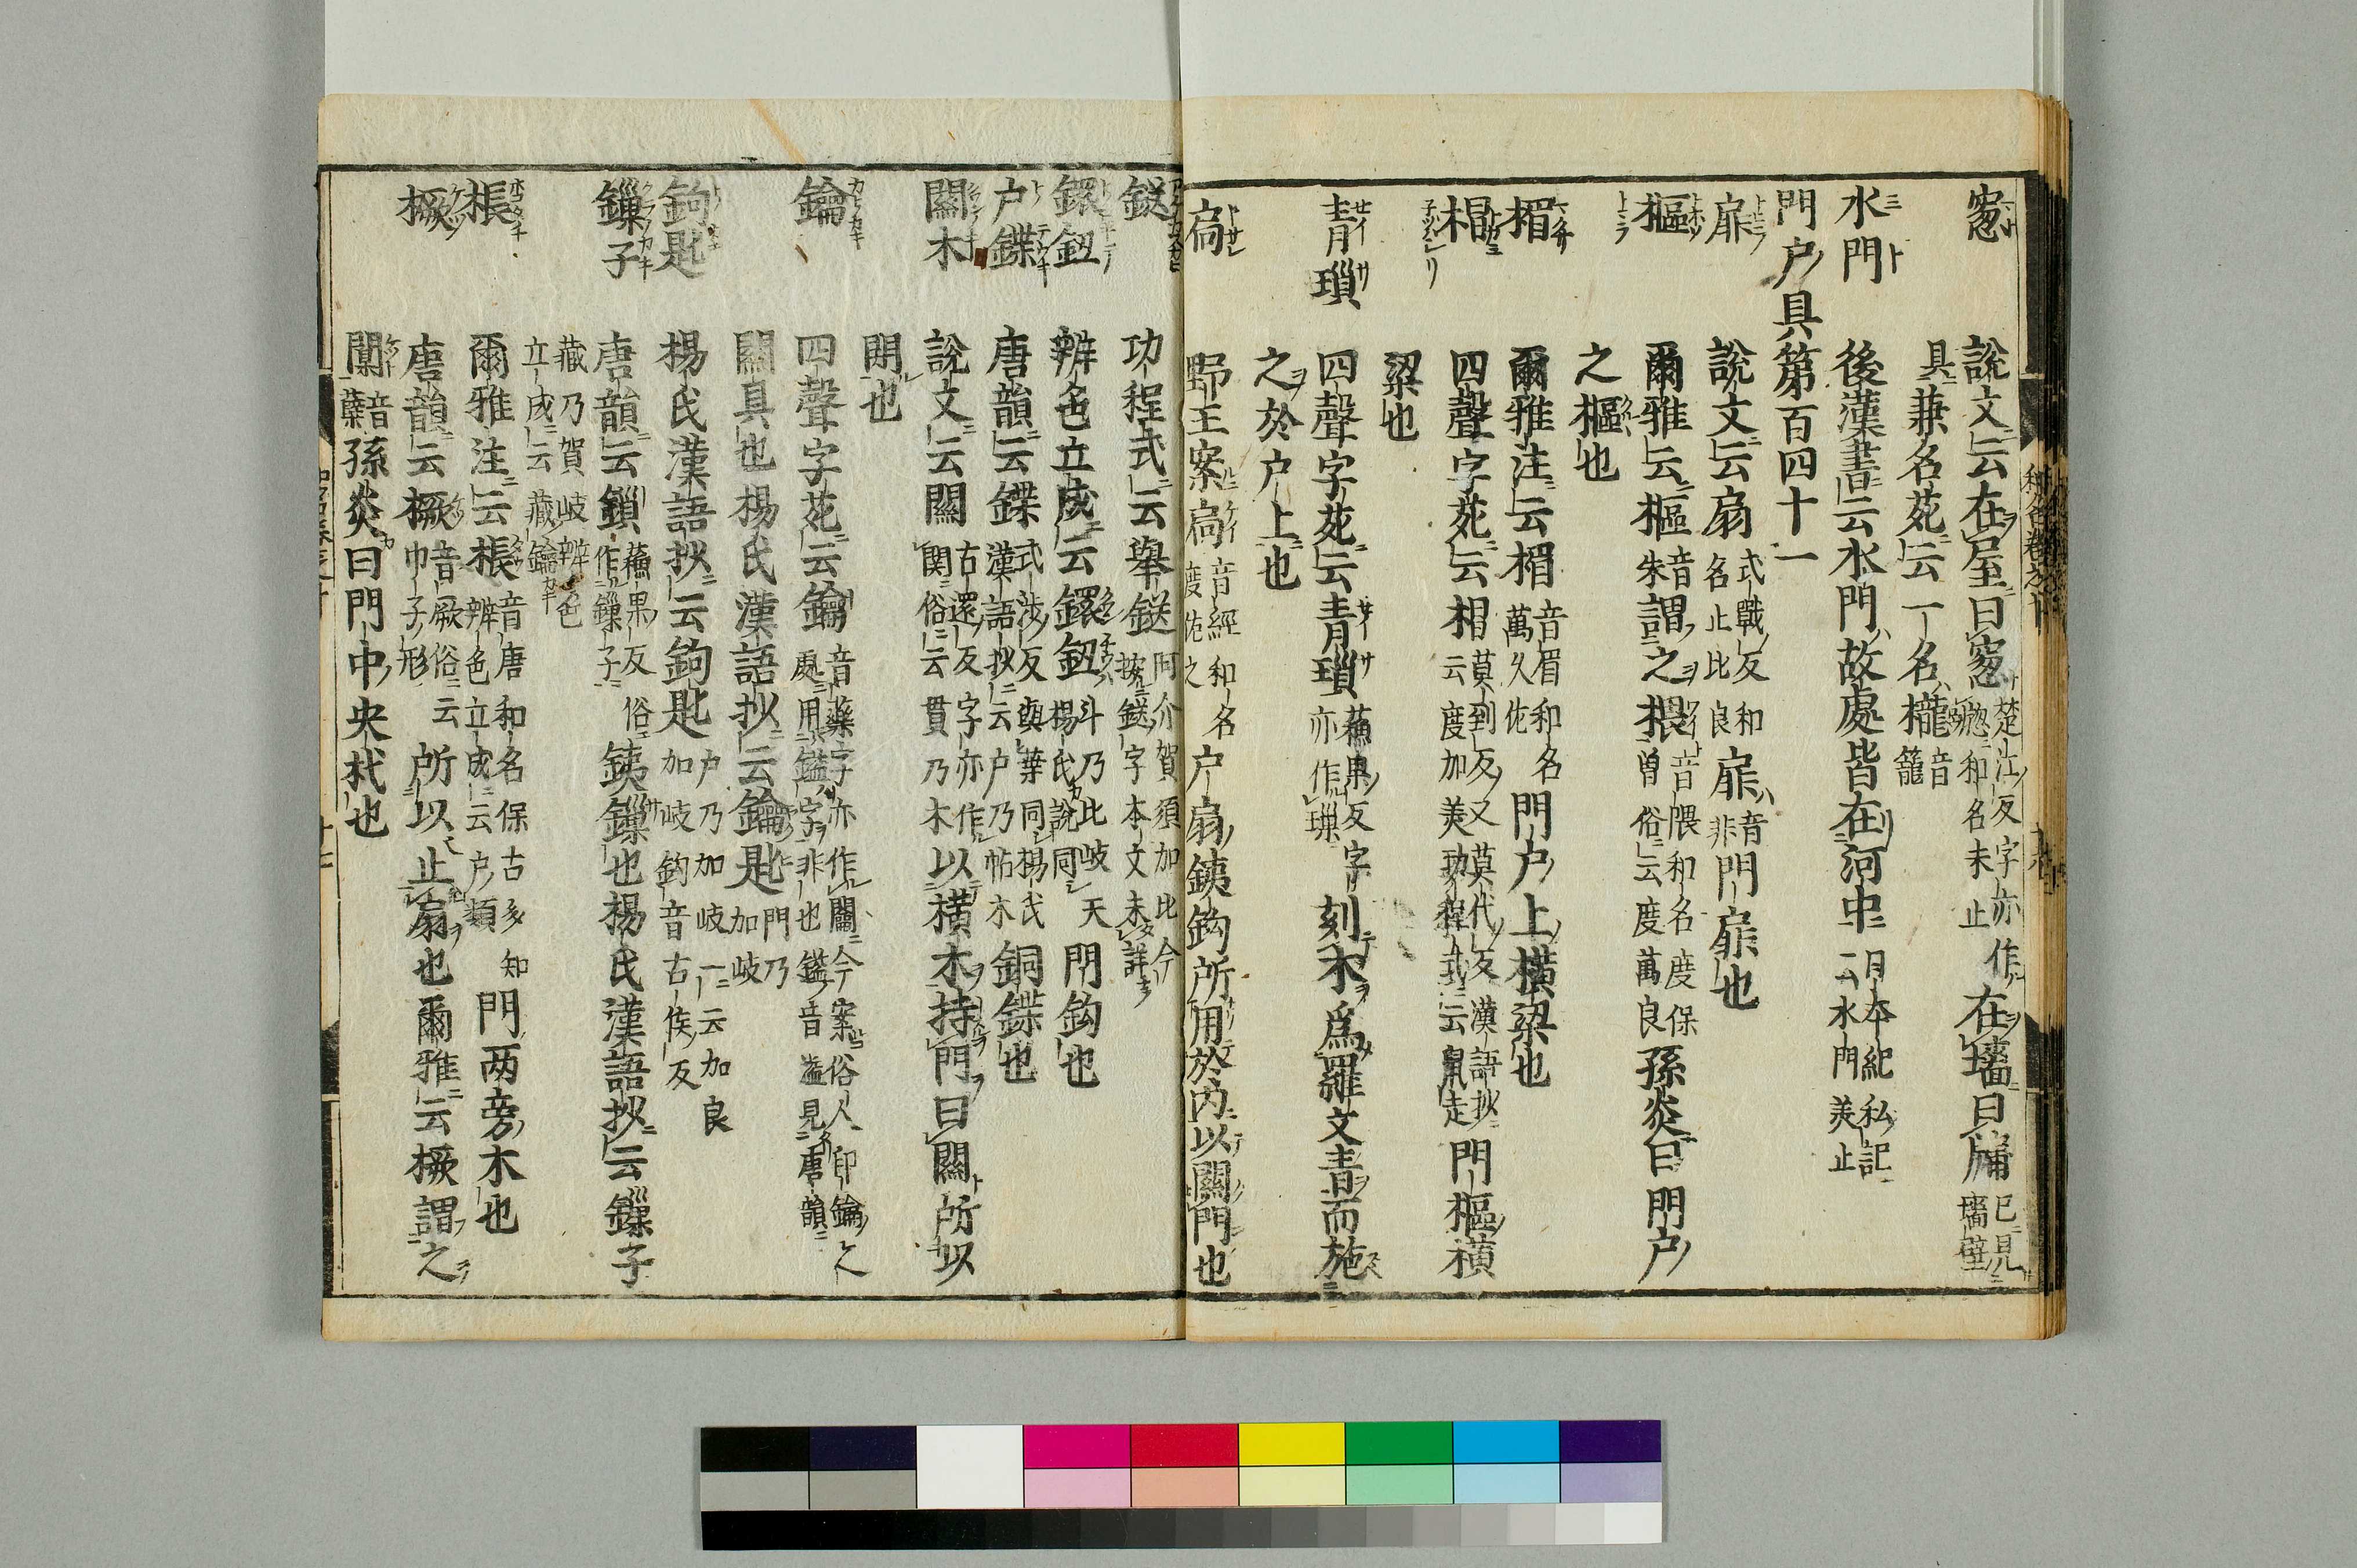 窓 說文云在屋曰窓 楚江反字亦作牎和名末止 在墻曰牖 已見墻壁
具兼名苑云一名櫳 音籠
水門 後漢書云水門故處皆在河中 日本紀私記云水門美止
門户具第百四十一
扉 說文云扇 式戰反和名止比良 扉 音非 門扉也
樞 爾雅云樞 音朱 謂之椳 音隈和名度保曽俗云度萬良 孫炎曰門户
之樞也
楣 爾雅注云楣 音眉和名萬久佐 門户上横梁也
梠 四聲字苑云梠 莫到反又莫代反漢語抄云度加美功程式云鼠走 門樞横
梁也
青瑣 四聲字苑云青瑣 蘓果反字亦作璅 刻木爲羅文青而施
之於户上也
扃 野王案扃 音經和名度佐之 户扇鐵鈎所用於内以關門也
鎹 功程式云舉鎹 阿介賀須加比今按鎹字本文未詳
鐶鈕 辨色立成云鐶鈕 斗乃比岐天楊氏說同 門鈎也
户鍱 唐韻云鍱 式渉反與葉同楊氏漢語抄云户乃帖木 銅鍱也
關木 說文云關 古還反字亦作関俗云貫乃木 以横木持門曰關所以
閇也
鑰 四聲字苑云鑰 音藥字亦作闟今案俗人印鑰之處用鎰字非也鎰音溢見唐韻
關具也楊氏漢語抄云鑰匙 門乃加岐
鉤匙 楊氏漢語抄云鉤匙 户乃加岐一云加良加岐鈎音古侯反
鏁子 唐韻云鎻 蘓果反俗作鏁子 鐵鏁也楊氏漢語抄云鏁子
藏乃賀岐辨色立成云藏鑰
棖 爾雅注云棖 音唐和名保古多知辨色立成云户類 門两旁木也
橛 唐韻云橛 音厥俗云巾子形 所以止扇也爾雅云橛謂之
闑 音蘖 孫炎曰門中央杙也